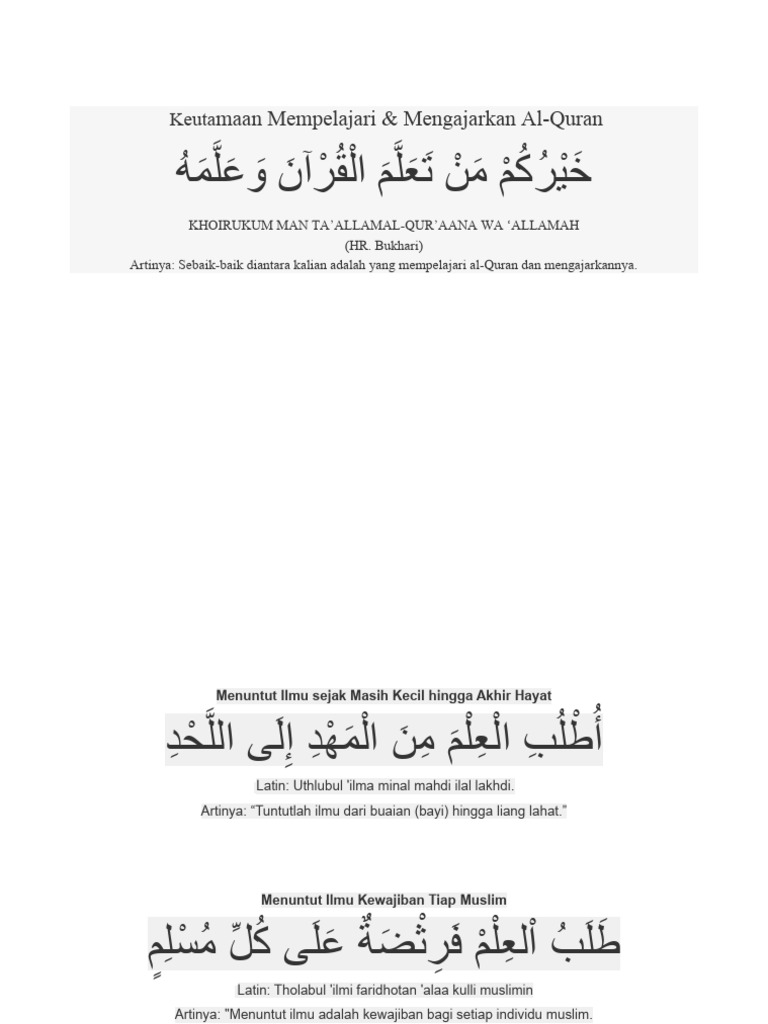 Keutamaan Mempelajari & Mengajarkan Al-Quran
خَيْرُكُمْ مَنْ تَعَلَّمَ الْقُرْآنَ وَعَلَّمَهُ
KHOIRUKUM MAN TA’ALLAMAL-QUR’AANA WA ‘ALLAMAH
(HR. Bukhari)
Artinya: Sebaik-baik diantara kalian adalah yang mempelajari al-Quran dan mengajarkannya.
Menuntut Ilmu sejak Masih Kecil hingga Akhir Hayat
أُطْلُبِ الْعِلْمَ مِنَ الْمَهْدِ إِلَى اللَّحْدِ
Latin: Uthlubul 'ilma minal mahdi ilal lakhdi.
Artinya: “Tuntutlah ilmu dari buaian (bayi) hingga liang lahat.”
Menuntut Ilmu Kewajiban Tiap Muslim
طَلَبُ اْلعِلْمْ فَرِثْضَةٌ عَلَى كُلِّ مُسْلِمٍ
Latin: Tholabul 'ilmi faridhotan 'alaa kulli muslimin
Artinya: "Menuntut ilmu adalah kewajiban bagi setiap individu muslim.